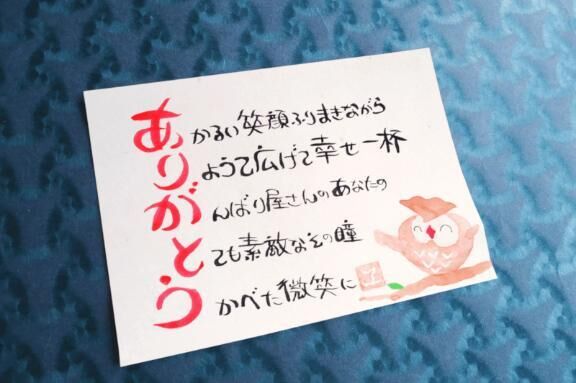 あかるい笑顔ふりまきながら
りょうて広げて幸せ一杯
がんばり屋さんのあなたの
とても素敵なその瞳
うかべた微笑に